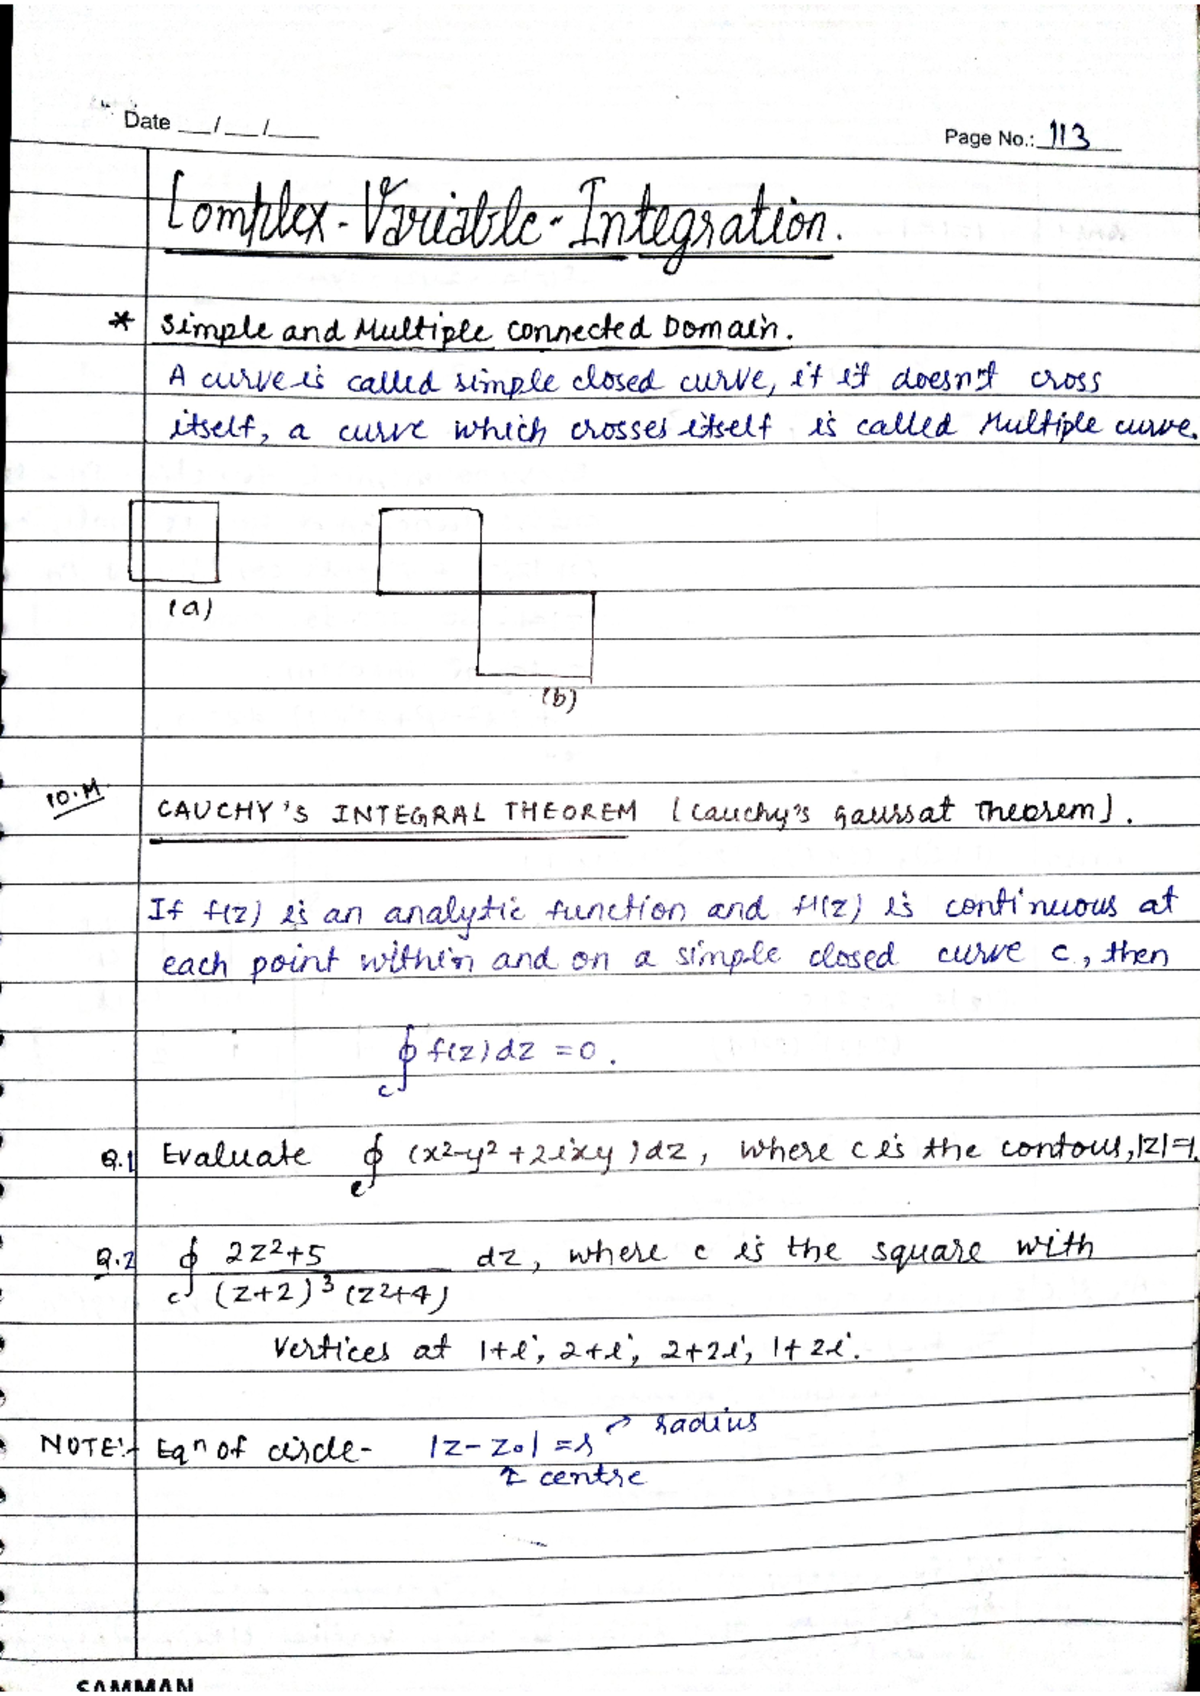 Date __/__/__
Page No.: 113
Complex-Variable-Integration.
* Simple and Multiple connected Domain.
A curve is called simple closed curve, if it doesn't cross
itself, a curve which crosses itself is called Multiple curve.
(a)
(b)
10.M.
CAUCHY'S INTEGRAL THEOREM [Cauchy's gaussat Theorem].
If f(z) is an analytic function and f'(z) is continuous at
each point within and on a simple closed curve c, then
∮c f(z)dz = 0.
Q.1 Evaluate ∮c (x²-y²+2ixy)dz, where c is the contour, |z|=1.
Q.2 ∮c (2z²+5)/((z+2)³(z²+4)) dz, where c is the square with
Vertices at 1+i, 2+i, 2+2i, 1+2i.
NOTE:- Eqⁿ of circle- |z-z₀|=r → radius
↑ centre
SAMMAN